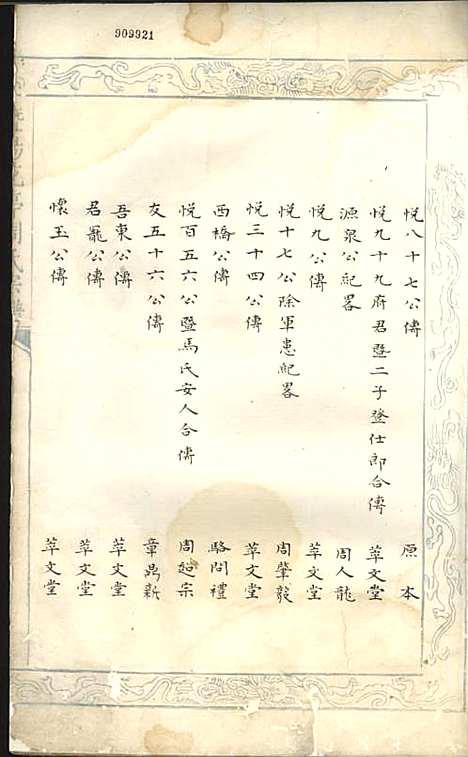 909921
悅八十七公傳 原本
悅九十九府君暨二子登仕郎合傳 萃文堂
源泉公紀畧 周人龍
悅九公傳 萃文堂
悅十七公除軍患紀畧 周肇毅
悅三十四公傳 萃文堂
西橋公傳 駱問禮
悅百五六公暨馬氏安人合傳 周宗
友五十六公傳 章禹新
吾東公傳 萃文堂
君寵公傳 萃文堂
懷玉公傳 萃文堂